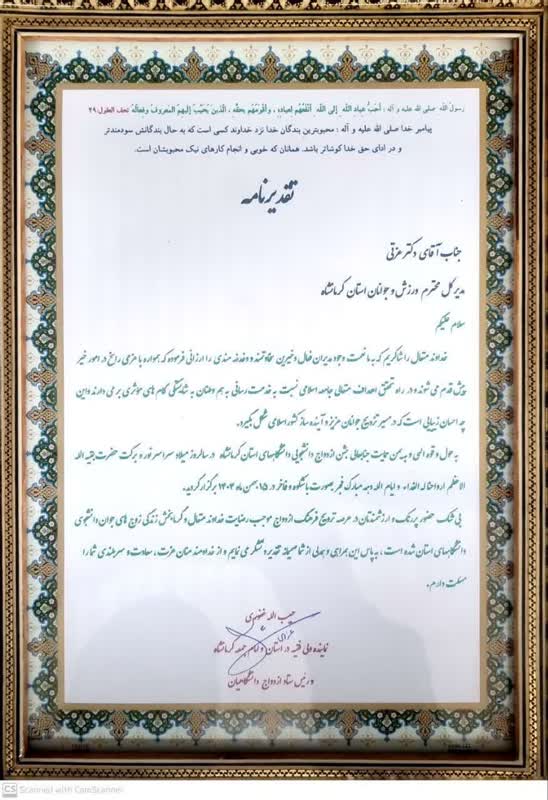 رسول الله صلی الله علیه و آله : أحَبُّ عِبادِ اللّهِ إلَى اللّهِ أنْفَعُهُم لِعِبادِهِ، و أقْوَمُهُم بِحَقِّهِ، الَّذينَ يُحَبَّبُ إليهِمُ المَعروفُ و فِعالُهُ تحف العقول: ۴۹
پیامبر خدا صلی الله علیه و آله : محبوبترین بندگان خدا نزد خداوند کسی است که به حال بندگانش سودمندتر
و در ادای حق خدا کوشاتر باشد. همانان که خوبی و انجام کارهای نیک محبوبشان است.
تقدیرنامه
جناب آقای دکتر عزتی
مدیرکل محترم ورزش و جوانان استان کرمانشاه
سلام علیکم
خداوند متعال را شاکریم که به ما نعمت وجود مدیران فعال و خیرین سخاوتمند و دغدغه مندی را ارزانی فرموده که همواره با عزمی راسخ در امور خیر
پیش قدم می شوند و در راه تحقق اهداف متعالی جامعه اسلامی نسبت به خدمت رسانی به هم وطنان به شایستگی گام های مؤثری برمی دارند و این
چه احسان زیبایی است که در مسیر تزویج جوانان عزیز و آینده ساز کشور اسلامی شکل بگیرد.
به حول و قوه الهی و به یمن حمایت جنابعالی جشن ازدواج دانشجویی دانشگاههای استان کرمانشاه در سالروز میلاد سراسر نور و برکت حضرت بقیه الله
الاعظم ارواحناله الفداء و ایام الله دهه مبارک فجر بصورت باشکوه و فاخر در ۱۵ بهمن ماه ۱۴۰۴ برگزار گردید.
بی شک حضور پررنگ و ارزشمندتان در عرصه ترویج فرهنگ ازدواج موجب رضایت خداوند متعال و گرمابخش زندگی زوج های جوان دانشجوی
دانشگاههای استان شده است ، به پاس این همراهی و همدلی از شما صمیمانه تقدیر و تشکر می نمایم و از خداوند منان عزت ، سعادت و سربلندی شما را
مسئلت دارم .
حبیب الله غفوری
نماینده ولی فقیه در استان و امام جمعه کرمانشاه
و رئیس ستاد ازدواج دانشگاهیان
CS Scanned with CamScanner